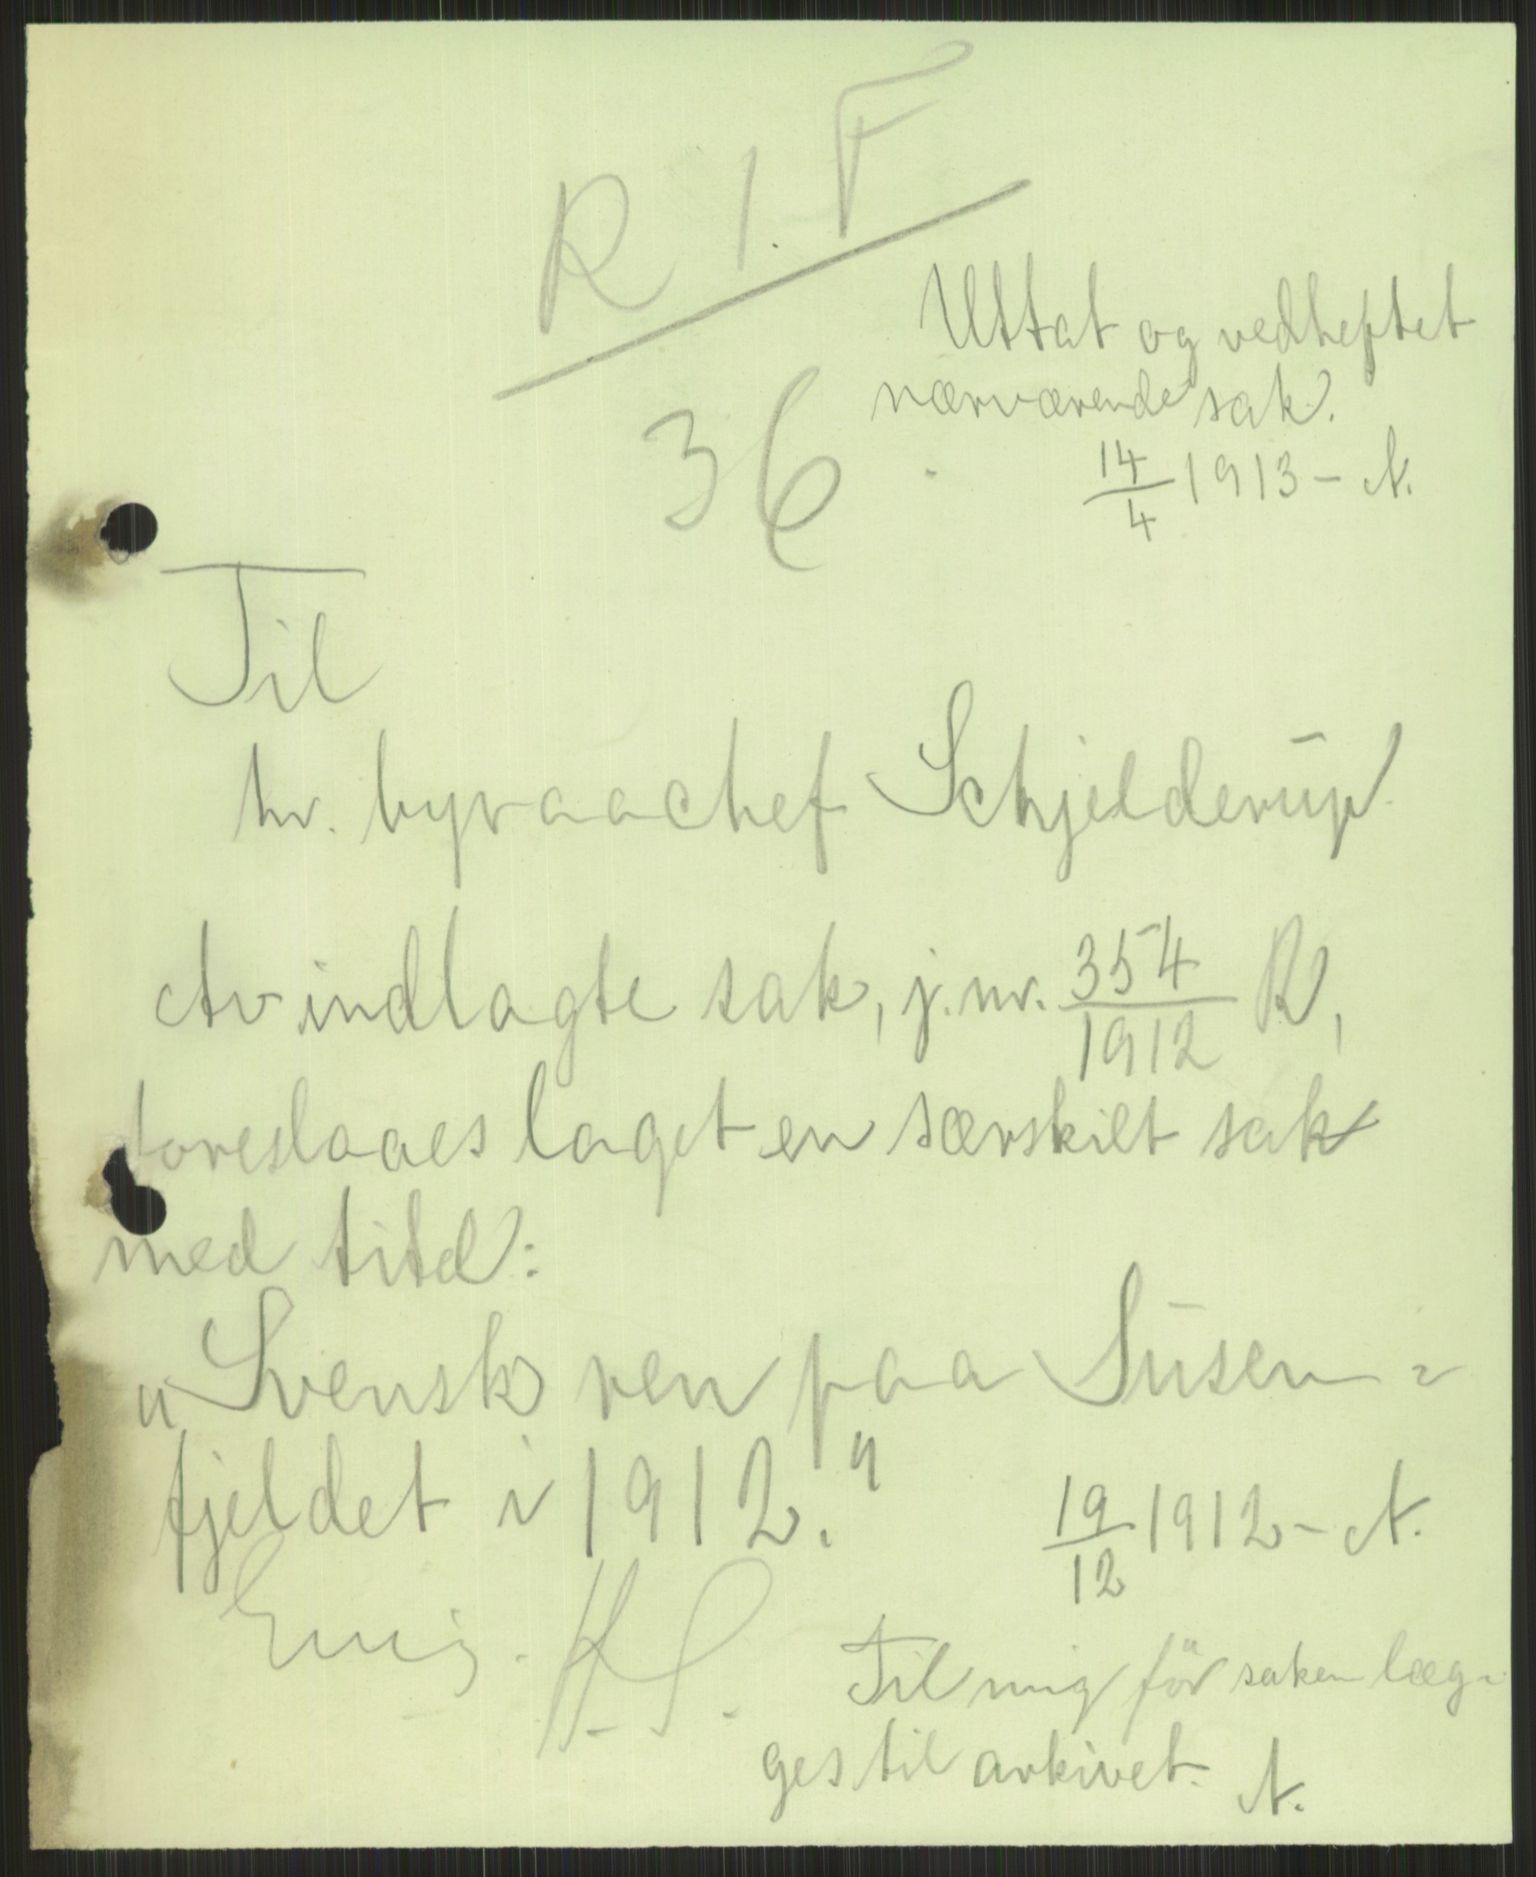 R 1. F
36
Uttat og vedheftet
nærværende sak.
14/4 1913 - A.
Til
hr. byraachef Schjelderup
Av indlagte sak, j. nr. 354/1912 R,
foreslaaes laget en særskilt sak
med titel:
„Svensk ren paa Susen=
fjeldet i 1912."
19/12 1912 - A.
Enig. H.S.
Til mig før saken læg-
ges til arkivet. A.